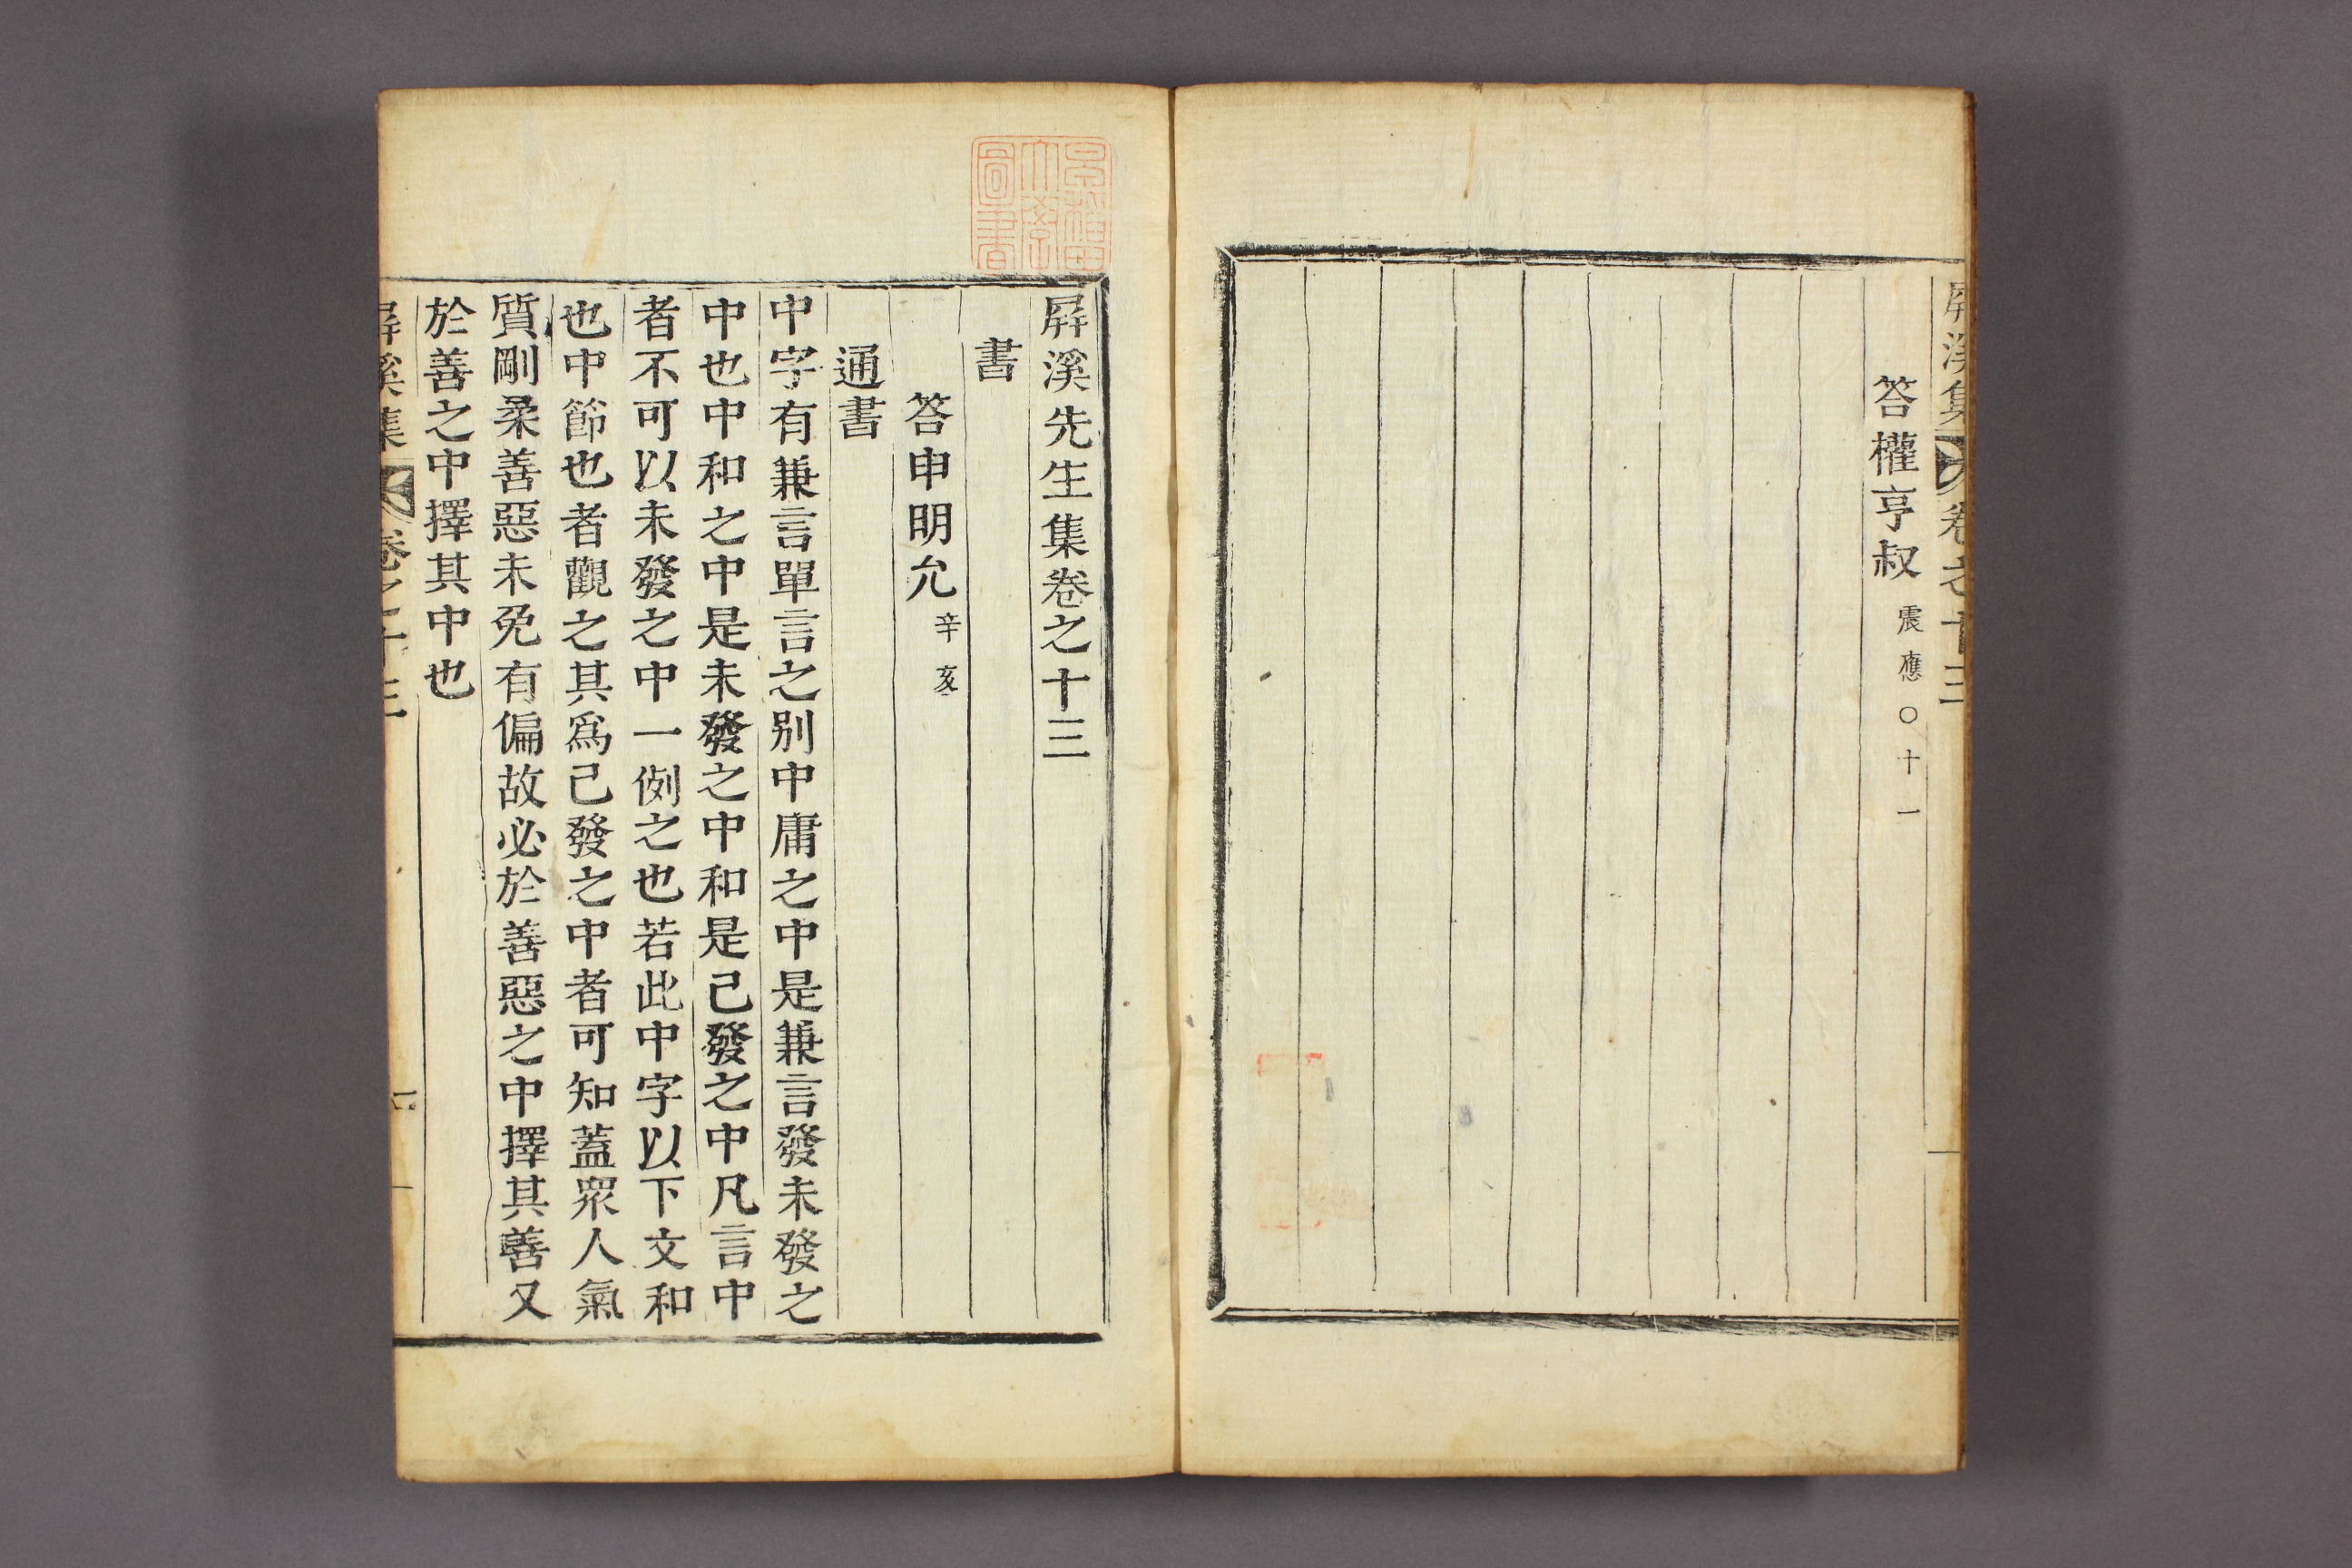 屛溪集 卷之十三
答權亨叔 震應〇十一
屛溪先生集卷之十三
書
答申明允 辛亥
通書
中字有兼言單言之别中庸之中是兼言發未發之
中也中和之中是未發之中和是已發之中凡言中
者不可以未發之中一例之也若此中字以下文和
也中節也者觀之其爲已發之中者可知蓋衆人氣
質剛柔善惡未免有偏故必於善惡之中擇其善又
於善之中擇其中也
屛溪集 卷之十三 一